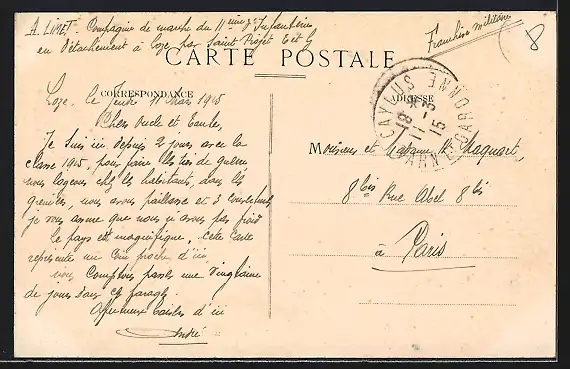 A. LINET - Compagnie de marche du 11ème d'Infanterie
en Détachement à Loze par Saint Projet T et G
Franchise militaire
8
CARTE POSTALE
CORRESPONDANCE
ADRESSE
CAYLUS
TARN-ET-GARONNE
18
11 -3
15
Loze, le Jeudi 11 Mars 1915
Chers Oncle et Tante,
Je suis ici depuis 2 jours avec la
classe 1915, pour faire les tirs de guerre
nous logeons chez les habitants, dans les
greniers, nous avons paillasse et 3 couvertures
je vous assure que nous n'avons pas froid
Le pays est magnifique, cette carte
représente un coin proche d'ici
nous comptons passer une vingtaine
de jours dans ces parages.
Affectueux baisers d'ici
André
Monsieur et Madame R. Maquart
8bis Rue Abel 8bis
à Paris